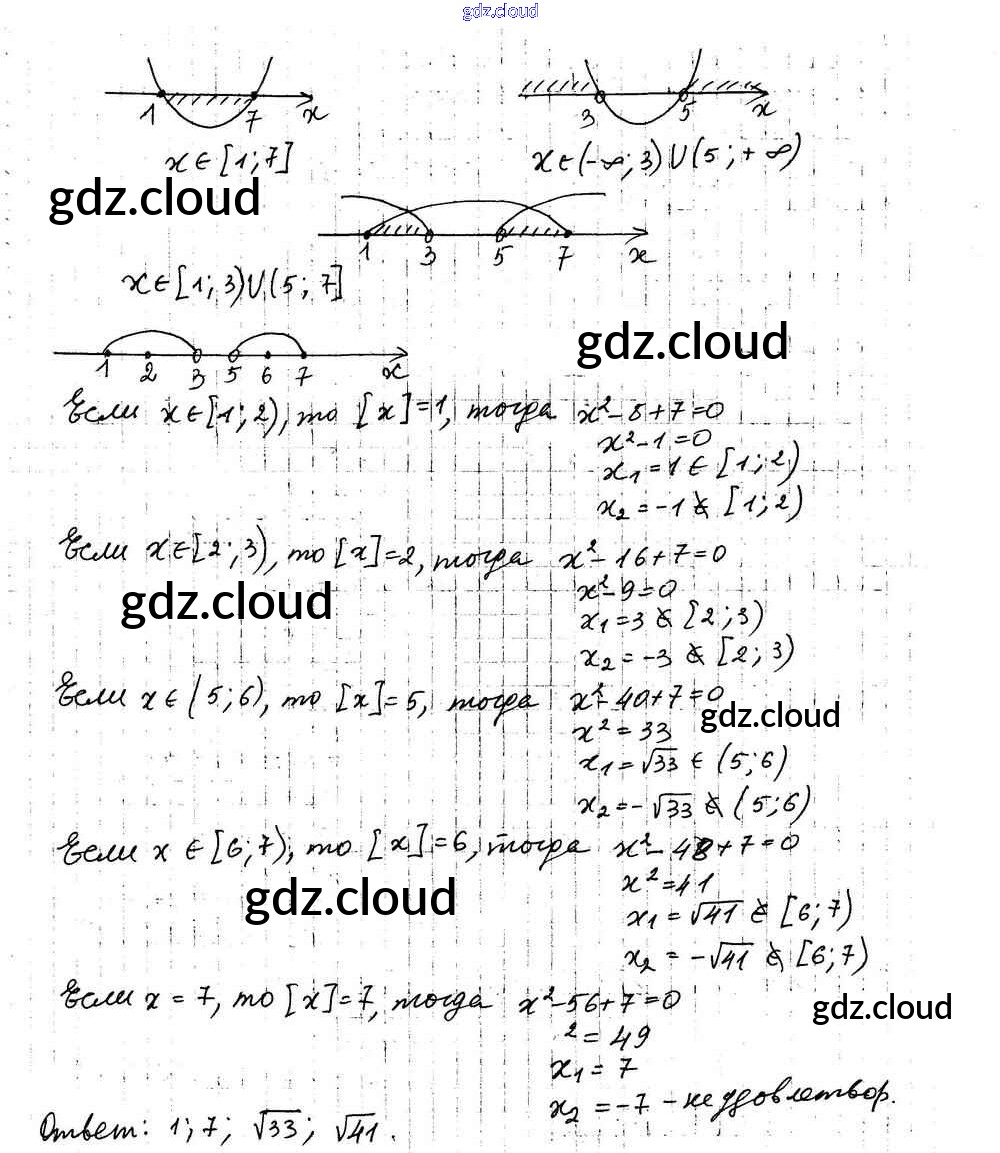 gdz.cloud
1 7 x
3 5 x
x ∈ [1; 7]
x ∈ (-∞; 3) ∪ (5; +∞)
gdz.cloud
1 3 5 7 x
x ∈ [1; 3) ∪ (5; 7]
gdz.cloud
1 2 3 5 6 7 x
Если x ∈ [1; 2), то [x] = 1, тогда x² - 8 + 7 = 0
x² - 1 = 0
x₁ = 1 ∈ [1; 2)
x₂ = -1 ∉ [1; 2)
Если x ∈ [2; 3), то [x] = 2, тогда x² - 16 + 7 = 0
x² - 9 = 0
gdz.cloud
x₁ = 3 ∉ [2; 3)
x₂ = -3 ∉ [2; 3)
Если x ∈ (5; 6), то [x] = 5, тогда x² - 40 + 7 = 0
gdz.cloud
x² = 33
x₁ = √33 ∈ (5; 6)
x₂ = -√33 ∉ (5; 6)
Если x ∈ [6; 7), то [x] = 6, тогда x² - 48 + 7 = 0
x² = 41
gdz.cloud
x₁ = √41 ∈ [6; 7)
x₂ = -√41 ∉ [6; 7)
Если x = 7, то [x] = 7, тогда x² - 56 + 7 = 0
gdz.cloud
² = 49
x₁ = 7
x₂ = -7 - не удовлетвор.
Ответ: 1; 7; √33; √41.